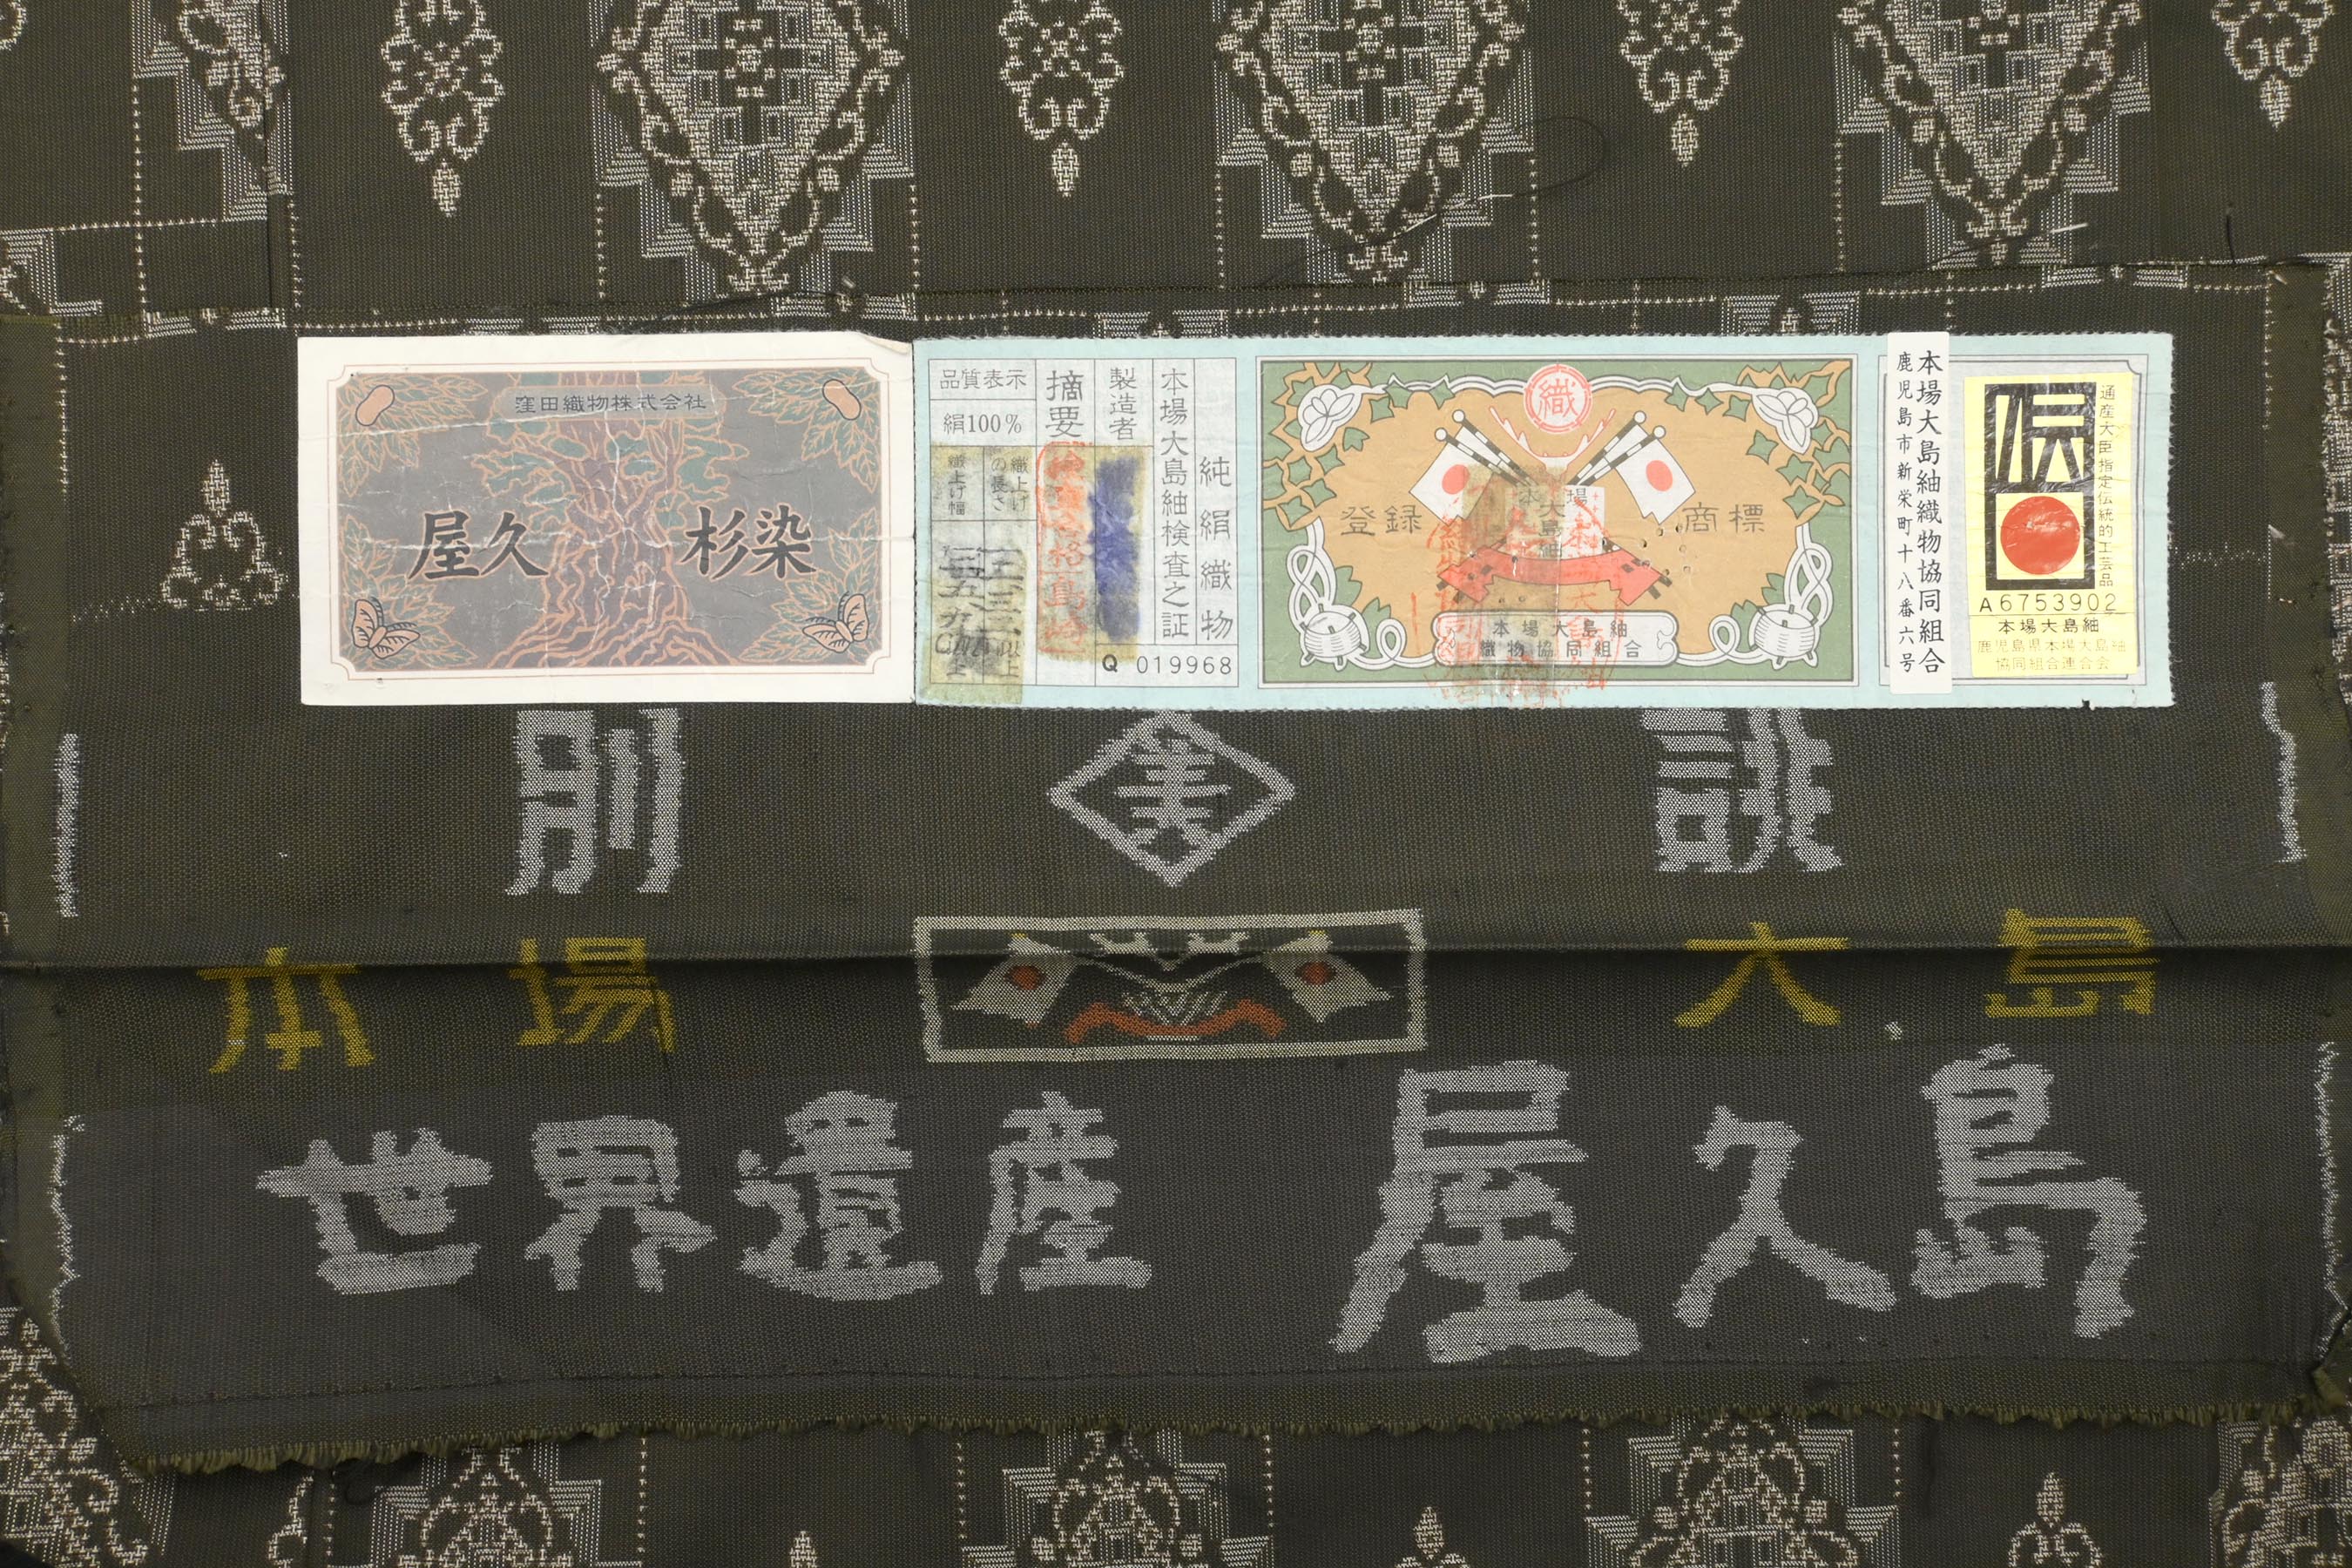 窪田織物株式会社
屋久杉染
品質表示
絹100%
織上げ幅
織上げの長さ
摘要
製造者
本場大島紬検査之証
純絹織物
Q 019968
織
登録商標
本場
大島紬
本場大島紬
織物協同組合
本場大島紬織物協同組合
鹿児島市新栄町十八番六号
伝
通産大臣指定伝統的工芸品
A6753902
本場大島紬
鹿児島県本場大島紬
協同組合連合会
別誂
本場大島
世界遺産 屋久島